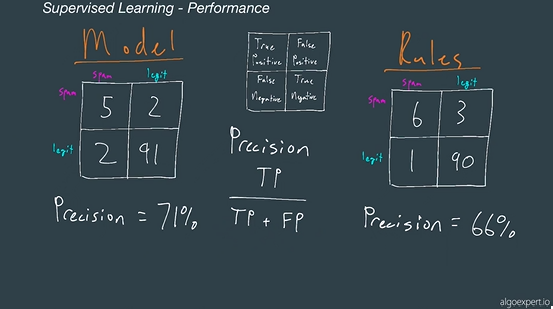 Supervised Learning - Performance
Model
spam legit
spam 5 2
legit 2 91
Precision = 71%
True Positive False Positive
False Negative True Negative
Precision
TP
TP + FP
Rules
spam legit
spam 6 3
legit 1 90
Precision = 66%
algoexpert.io